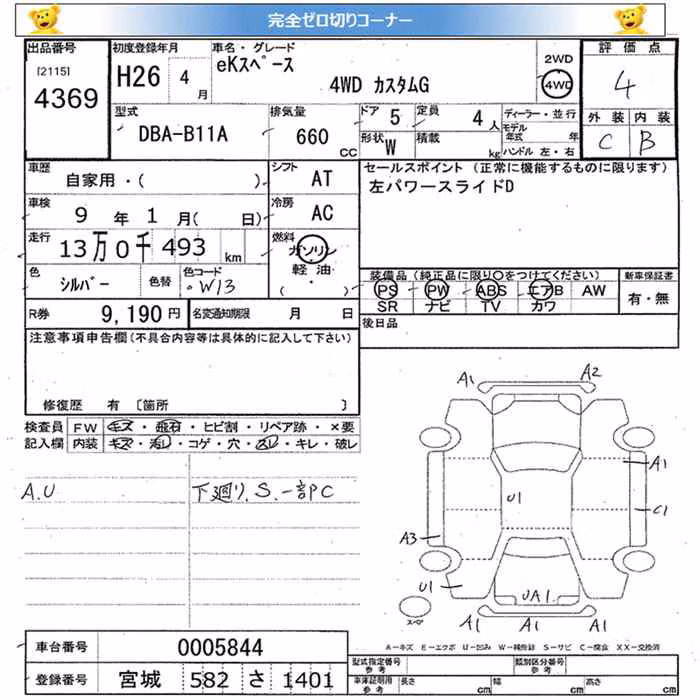 完全ゼロ切りコーナー
出品番号 初度登録年月 車名・グレード 評価点
[2115] 4369 H26 4月 eKスペース 4WD カスタムG 2WD 4WD 4
型式 排気量 ドア 5 定員 4人 ディーラー・並行 外装 内装
DBA-B11A 660 CC 形状 W 積載 kg モデル年式 年 ハンドル 左・右 C B
車歴 自家用・( ) シフト AT セールスポイント (正常に機能するものに限ります)
左パワースライドD
車検 9年 1月( 日) 冷房 AC
走行 13万0千493km 燃料 ガソリン 軽油 ( )
色 シルバー 色替 色コード W13 装備品(純正品に限り○をつけてください) 新車保証書
PS PW ABS エアB AW 有・無
SR ナビ TV カワ
R券 9,190円 名変通知期限 月 日 後日品
注意事項申告欄(不具合内容等は具体的に記入して下さい)
修復歴 有 〔箇所 〕
検査員 FW キズ・飛石・ヒビ割・リペア跡・×要
記入欄 内装 キズ・汚レ・コゲ・穴・スレ・キレ・破レ
A.U 下廻り、S.一部C
A1 A2
A1
U1 C1
A3
U1 UA1
スペア A1 A1 A1
A-キズ E-エクボ U-凹み W-補修跡 S-サビ C-腐食 XX-交換済
車台番号 0005844
型式指定番号 参考 類別区分番号 参考
登録番号 宮城 582 さ 1401
車庫証明用 参考 長さ cm 幅 cm 高さ cm